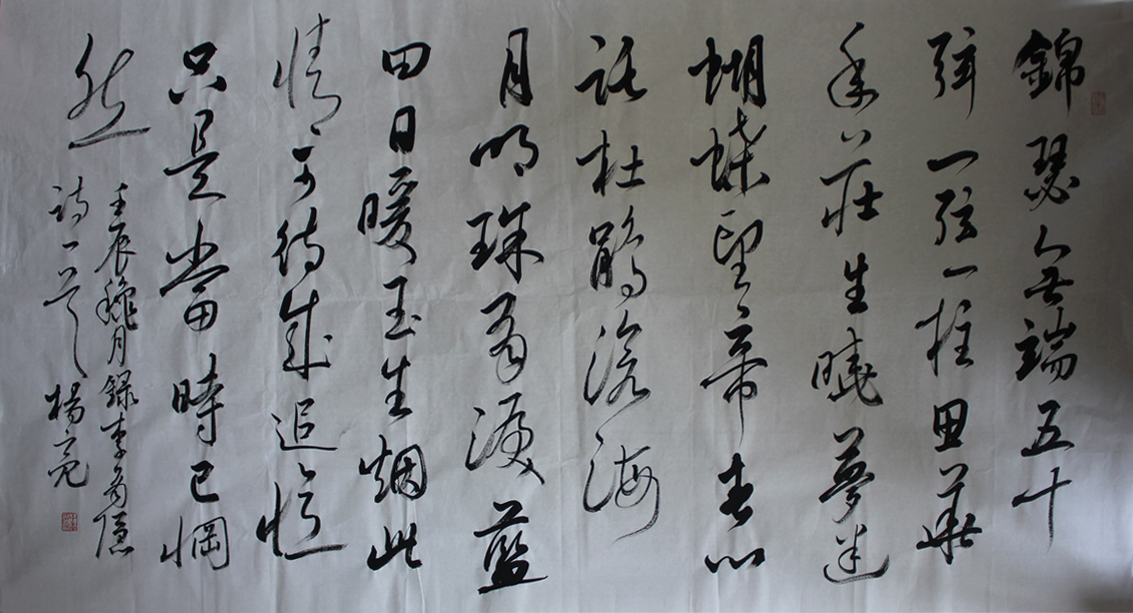 錦瑟無端五十
弦一弦一柱思華
年莊生曉夢迷
蝴蝶望帝春心
託杜鵑滄海
月明珠有淚藍
田日暖玉生烟此
情可待成追憶
只是當時已惘
然
壬辰穐月錄李商隱
詩一首 楊亮